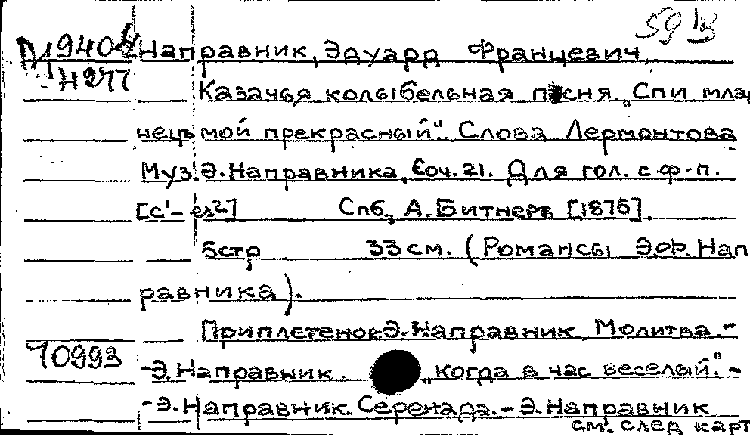 59
М940 Направник, Эдуард Францевич.
Н277
Казачья колыбельная песня „Спи мла
нецъ мой прекрасный". Слова Лермонтова
Муз. Э. Направника, Соч. 21. Для гол. с ф-п.
[c¹-es²] Спб, А. Битнеръ [1875].
5стр 33 см. (Романсы Эд. Нап
равника).
Приплетено: Э. Направник. Молитва.-
10993
-Э. Направник. „Когда в час веселый".-
-Э. Направник. Серенада.- Э. Направник
см. след карт